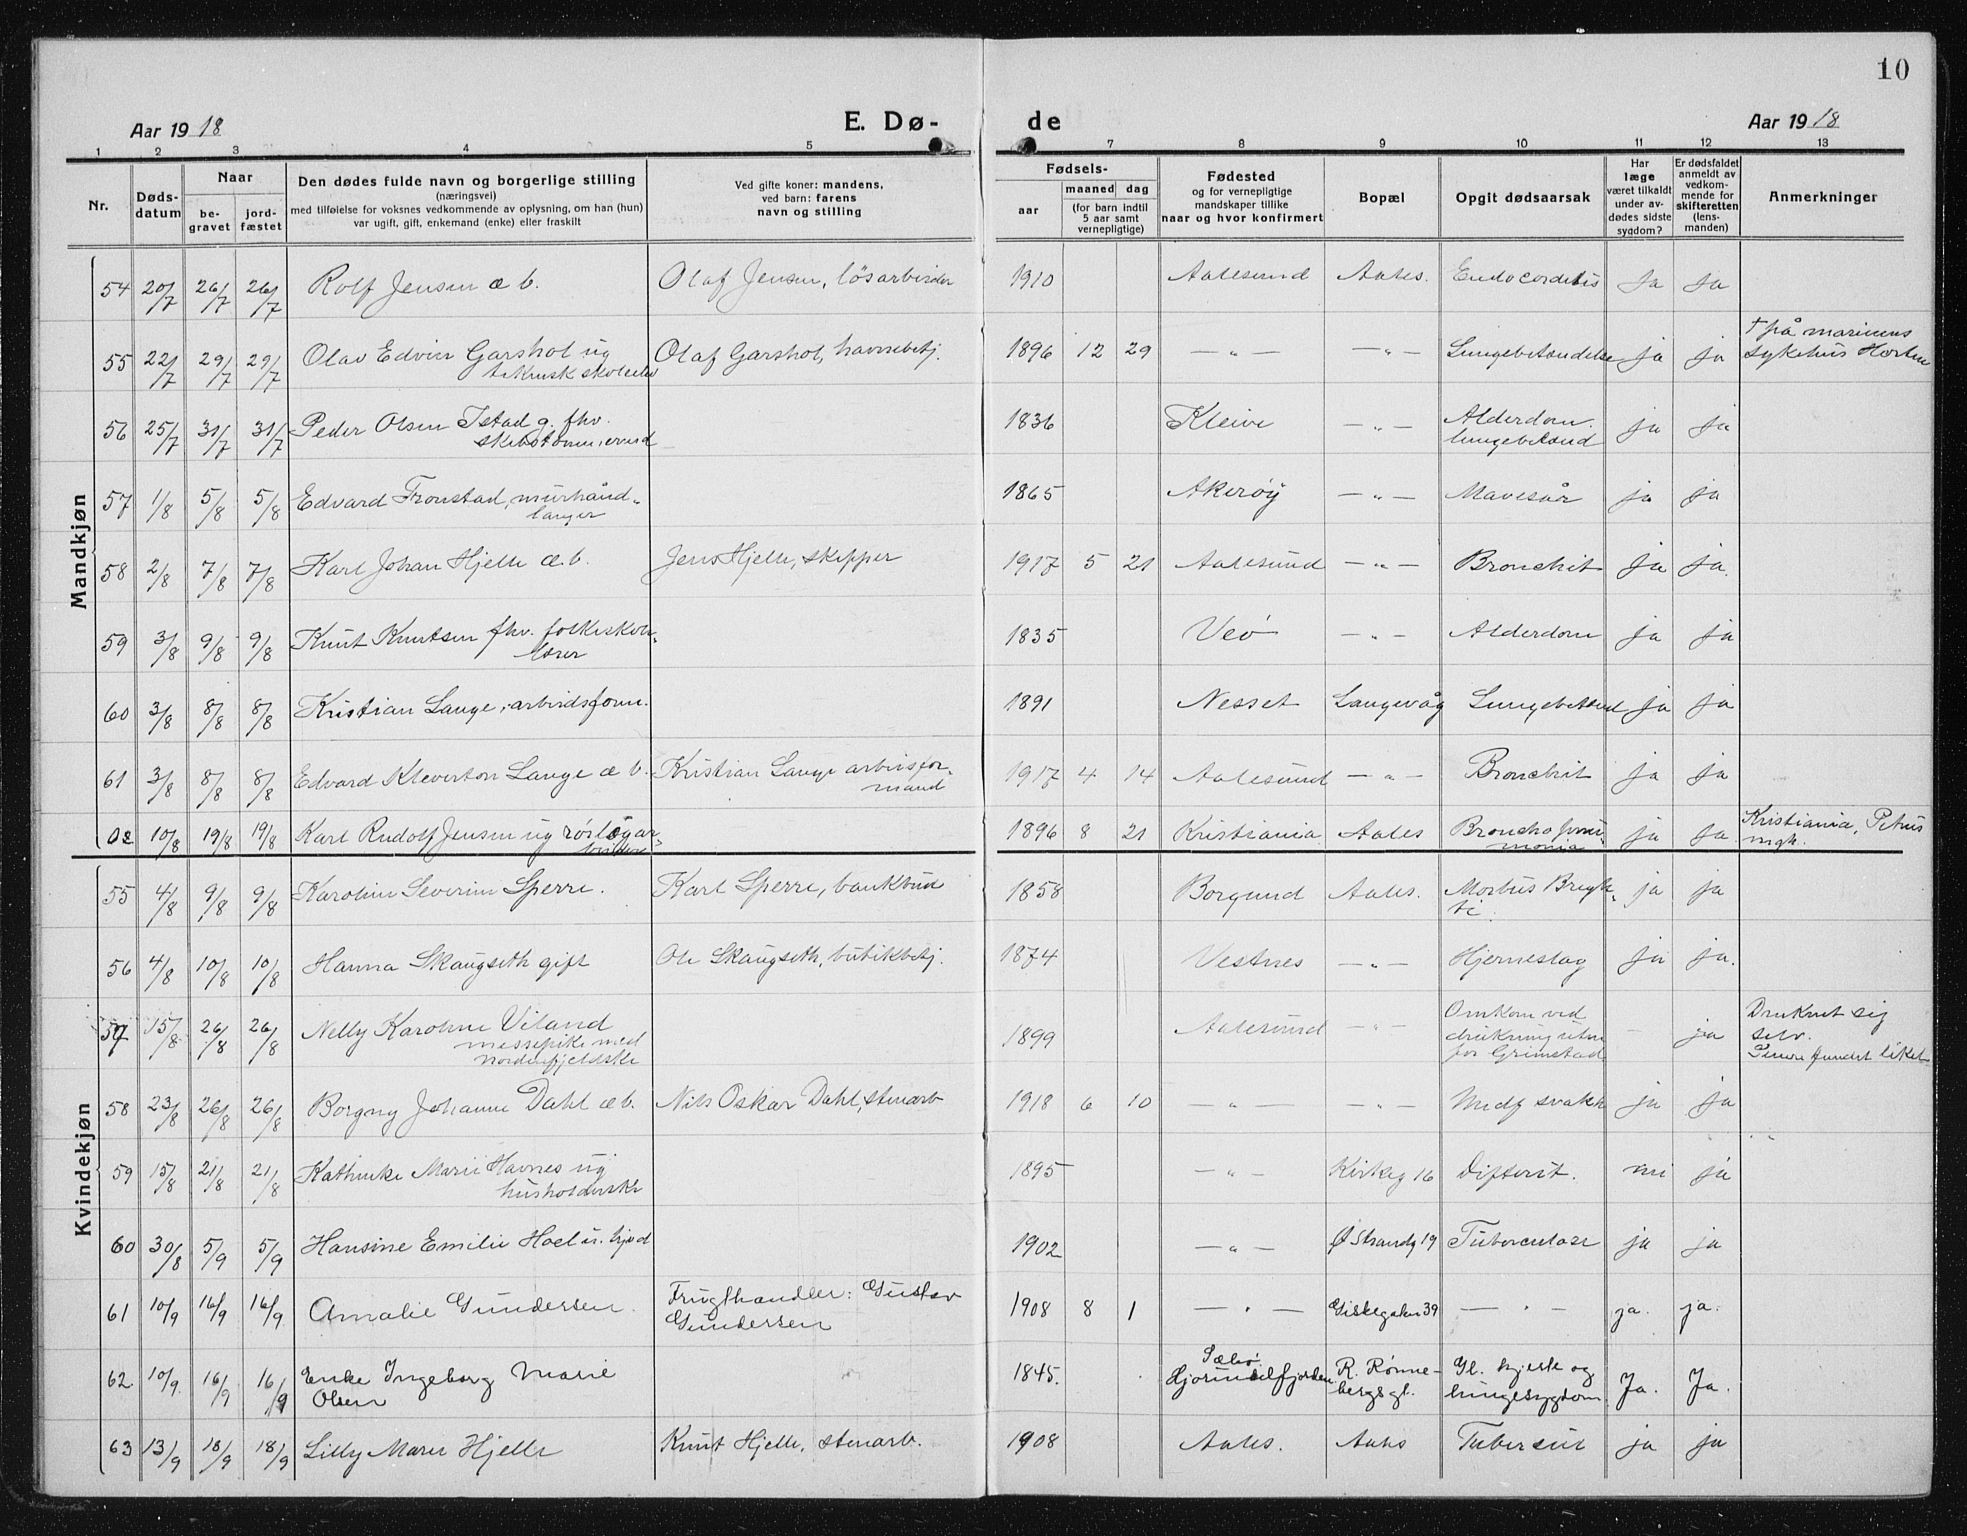 10
Aar 1918 E. Dø- de Aar 1918
1 2 3 4 5 7 8 9 10 11 12 13
Nr.
Døds-datum
Naar
be-gravet
jord-fæstet
Den dødes fulde navn og borgerlige stilling
(næringsvei)
med tilføielse for voksnes vedkommende av oplysning, om han (hun)
var ugift, gift, enkemand (enke) eller fraskilt
Ved gifte koner: mandens,
ved barn: farens
navn og stilling
Fødsels-
aar
maaned dag
(for barn indtil
5 aar samt
vernepligtige)
Fødested
og for vernepligtige
mandskaper tillike
naar og hvor konfirmert
Bopæl
Opgit dødsaarsak
Har
læge
været tilkaldt
under av-
dødes sidste
sygdom?
Er dødsfaldet
anmeldt av
vedkom-
mende for
skifteretten
(lens-
manden)
Anmerkninger
Mandkjøn
54 20/7 26/7 26/7 Rolf Jensen æ b. Olaf Jensen, løsarbeider 1910 Aalesund Aales. Endocorditis Ja Ja
55 22/7 29/7 29/7 Olav Edvin Garshol ug Olaf Garshol, havnebetj. 1896 12 29 —"— —"— Lungebetændelse ja ja † på marinens
teknisk skoleelev sykehus Horten
56 25/7 31/7 31/7 Peder Olsen Istad g. fhv. 1836 Kleive —"— Alderdom. ja ja
skibstømmermd lungebetænd
57 1/8 5/8 5/8 Edvard Tronstad, murhånd- 1865 Akerøy —"— Mavesår ja ja
langer
58 2/8 7/8 7/8 Karl Johan Hjelle æ.b. Jens Hjelle, skipper 1917 5 21 Aalesund —"— Bronchit Ja ja.
59 3/8 9/8 9/8 Knut Knutsen fhv. folkeskole- 1835 Veø —"— Alderdom ja ja
lærer
60 3/8 8/8 8/8 Kristian Lange, arbeidsform. 1891 Nesset Langevåg Lungebetænd ja ja
61 3/8 8/8 8/8 Edvard Kleverton Lange æ b. Kristian Lange arbeidsfor- 1917 4 14 Aalesund —"— Bronchit ja ja
mand
62 10/8 19/8 19/8 Karl Rudolf Jensen ug rørlegar- 1896 8 21 Kristiania Aales Broncho pneu- ja Ja Kristiania, Petrus
beider monia mgh.
Kvindekjøn
55 4/8 9/8 9/8 Karoline Severine Sperre. Karl Sperre, bankbud 1858 Borgund Aales. Morbus Brigh- ja ja
ti.
56 4/8 10/8 10/8 Hanna Skaugseth gift Ole Skaugseth, butikbetj. 1874 Vestnes —"— Hjerneslag ja ja.
57 15/8 26/8 26/8 Nelly Karoline Viland 1899 Aalesund —"— Omkom ved — ja Druknet sig
messepike med drukning uten selv.
Nordenfjeldske for Grimstad fundet liket
58 23/8 26/8 26/8 Borgny Johanne Dahl æ b. Nils Oskar Dahl, stenarb 1918 6 10 —"— —"— Medf svakh ja ja
59 15/8 21/8 21/8 Kathinke Marie Havnes ug 1895 —"— Kirkeg 16 Difterit. nei ja
husholderske
60 30/8 5/9 5/9 Hansine Emilie Hoel u. hjvd 1902 —"— Ø Strandg 19 Tuberculose ja ja
61 10/9 16/9 16/9 Amalie Gundersen. Frugthandler: Gustav 1908 8 1 —"— Giskegaten 39 —"— ja. ja.
Gundersen
62 10/9 16/9 16/9 Enke Ingeborg Marie 1845. Sæbø R. Rønne- Gl. hjerte og Ja. Ja.
Olsen Hjorundfjorden bergsgt. lungesygdom
63 13/9 18/9 18/9 Lilly Marie Hjelle Knut Hjelle, stenarb. 1908 Aales. Aales Tubersul ja ja